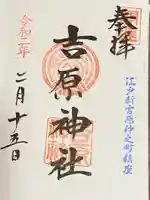 奉拝
江戸新吉原弁之町鎮座
吉原神社
令和二年
二月十五日